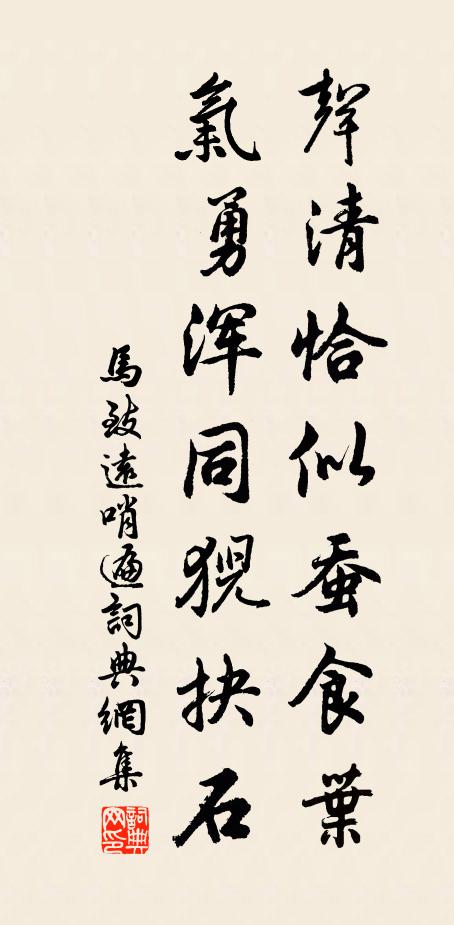 聲清恰似蚕食葉
氣勇浑同猊抉石
馬致遠哨遍詞典網集
詞典網印